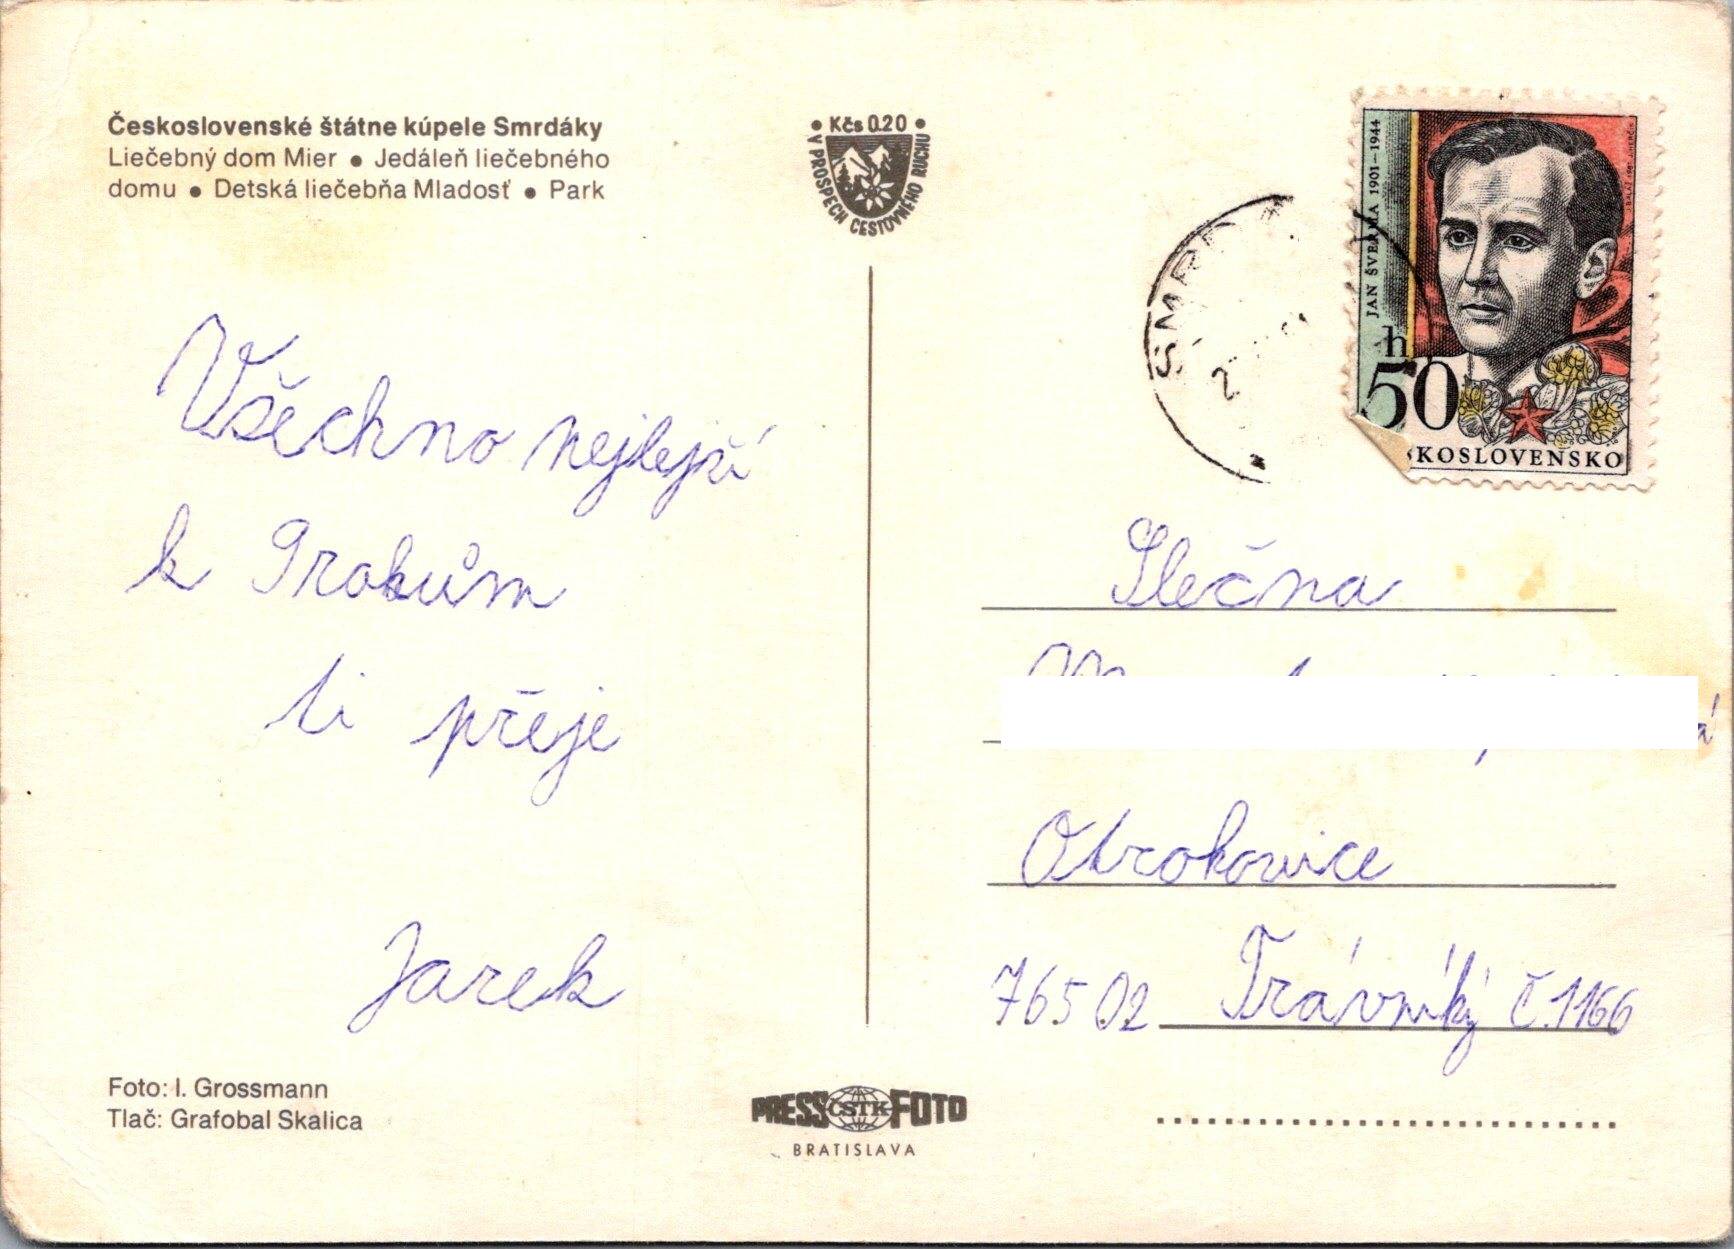 Československé štátne kúpele Smrdáky
Liečebný dom Mier • Jedáleň liečebného
domu • Detská liečebňa Mladosť • Park
• Kčs 0.20 •
V PROSPECH CESTOVNÉHO RUCHU
JAN ŠVERMA 1901–1944
h
50
KOSLOVENSKO
SMRD
Všechno nejlepší
k Prokům
ti přeje
Jarek
Slečna
Otrokovice
765 02 Trávníky č. 1166
Foto: I. Grossmann
Tlač: Grafobal Skalica
PRESS ČSTK FOTO
BRATISLAVA